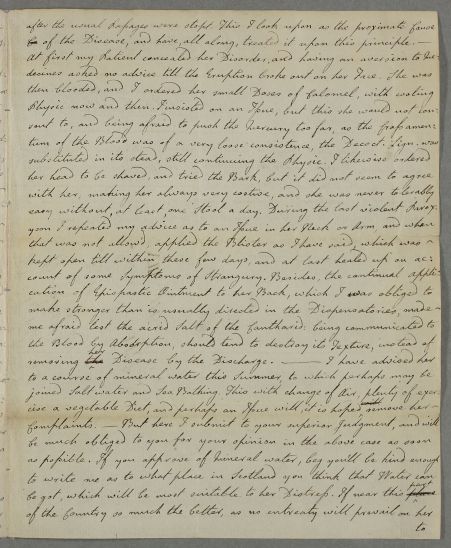 after the usual Passages were stopt This I look upon as the proximate Cause
of the Disease, and have, all along, treated it upon this principle. —
At first my Patient concealed her Disorder, and having an aversion to Me-
decines asked no advice till the Eruption broke out on her Face. She was
then blooded, and I ordered her small Doses of Calomel, with cooling
Physic now and then. I insisted on an Issue, but this she would not con-
sent to, and being afraid to push the Mercury too far, as the Crassamen-
tum of the Blood was of a very loose consistence, the Decoct. Lign. was
substituted in its stead, still continuing the Physic. I likewise ordered
her head to be shaved, and tried the Bark, but it did not seem to agree
with her, making her always very costive, and she was never tolerably
easy without, at least, one Stool a day. During the last violent Parox-
ysm I repeated my advice as to an Issue in her Neck or Arm, and when
that was not allowed, applied the Blister as I have said, which was
kept open till within these few days, and at last healed up on ac-
count of some Symptoms of Strangury. Besides, the continual appli-
cation of Epispastic Ointment to her Back, which I was obliged to
make stronger than is usually directed in the Dispensatories, made
me afraid lest the acrid Salt of the Cantharid: being communicated to
the Blood by Absorption, should tend to destroy its Texture, instead of
removing her Disease by the Discharge. — I have advised her
to a course of mineral water this Summer, to which perhaps may be
joined Salt water and Sea Bathing. This with change of Air, plenty of exer-
cise a vegetable Diet, and perhaps an Issue will, it is hoped, remove her
Complaints. — But here I submit to your superior Judgment, and will
be much obliged to you for your opinion in the above case as soon
as possible. If you approve of mineral water, beg you'll be kind enough
to write me as to what place in Scotland you think that Water can
be got, which will be most suitable to her Distress. If near this part
of the Country so much the better, as no entreaty will prevail on her
to